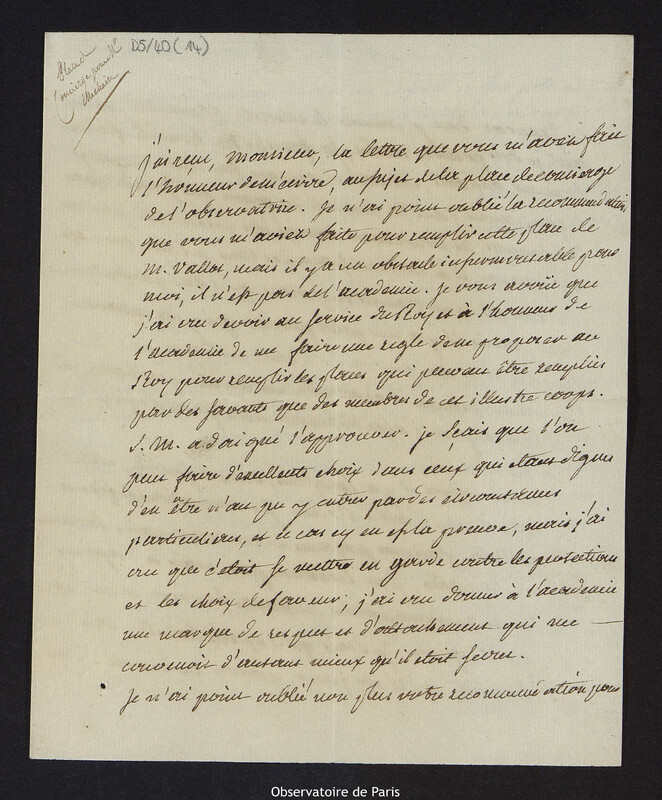 D5/40 (14)
Concierge pour Mr
Méchain
j'ai reçu, monsieur, la lettre que vous m'avez fait
l'honneur de m'écrire, au sujet de la place de concierge
de l'observatoire. Je n'ai point oublié la recommandation
que vous m'aviez faite pour remplir cette place de
M. Vallot, mais il y a un obstacle insurmontable pour
moi, il n'est pas de l'académie. je vous avoüe que
j'ai cru devoir au service du Roy et à l'honneur de
l'académie de me faire une regle de ne proposer au
Roy pour remplir les places qui peuvent être remplies
par des savants que des membres de cet illustre corps.
S. M. a daigné l'approuver. je sçais que l'on
peut faire d'excellents choix dans ceux qui étant dignes
d'en être n'ont pu y entrer par des circonstances
particulieres, et ce cas cy en est la preuve, mais j'ai
cru que c'étoit se mettre en garde contre les protections
et les choix de faveur; j'ai cru donner à l'academie
une marque de respect et d'attachement qui me
convenoit d'autant mieux qu'il étoit secret.
Je n'ai point oublié non plus votre recommandation pour
Observatoire de Paris